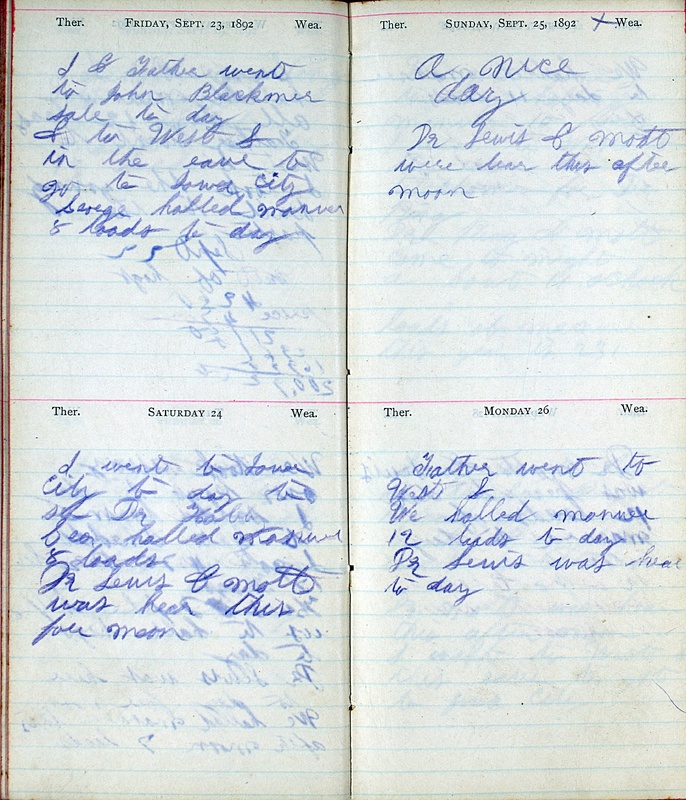 Ther. FRIDAY, SEPT. 23, 1892 Wea.
I & Father went
to John Blackmer
sale to day
I to West &
in the eave to
go to Iowa City
George halled manuer
8 loads to day
Ther. SATURDAY 24 Wea.
I went to Iowa
City to day to
see Dr
Geo halled manuer
8 loads
Dr Lewis & Mott
was hear this
fore moon
Ther. SUNDAY, SEPT. 25, 1892 Wea.
A nice
day
Dr Lewis & Mott
were hear this after
moon
Ther. MONDAY 26 Wea.
Father went to
West &
We halled manuer
12 loads to day
Dr Lewis was hear
to day